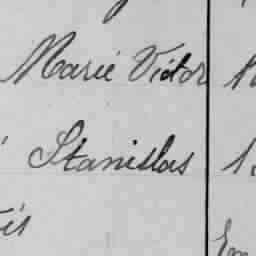 Marie Victor
Stanislas